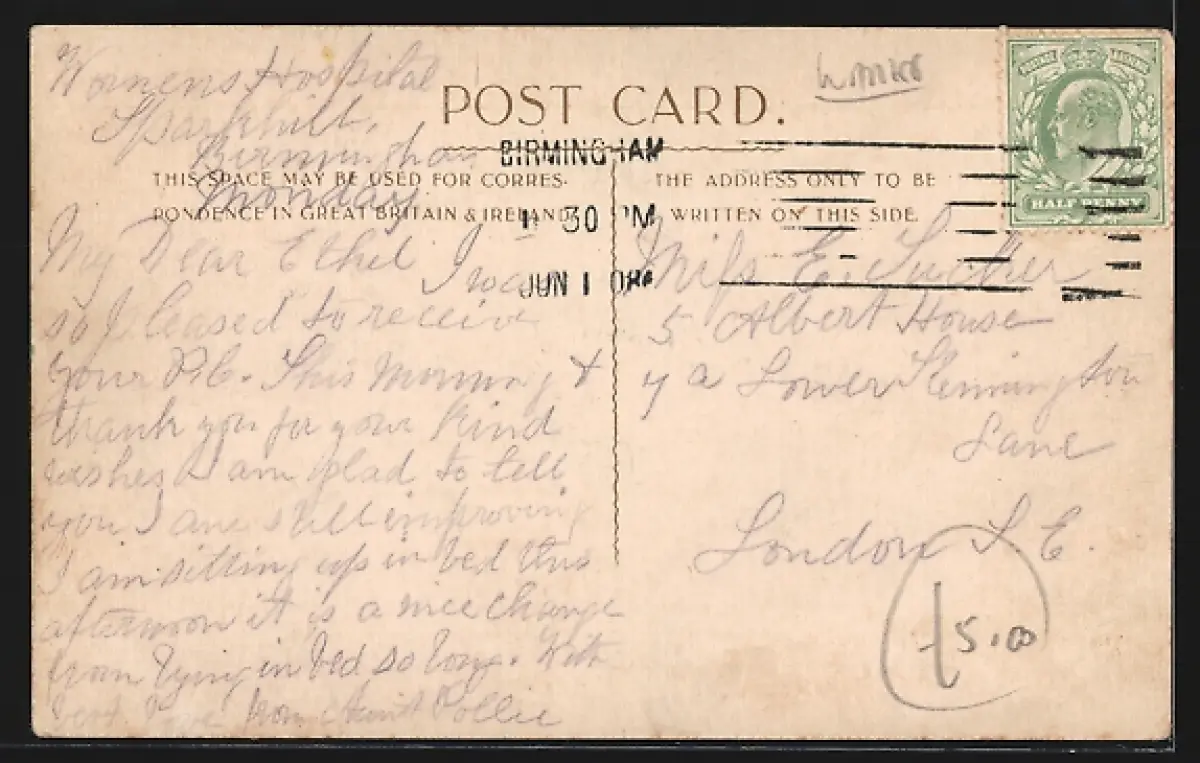 Womens Hospital
Sparkhill,
Birmingham
Monday
My Dear Ethel
I was
so pleased to receive
your P.C. This Morning &
thank you for your kind
wishes I am glad to tell
you I am still improving
I am sitting up in bed this
afternoon it is a nice change
from lying in bed so long. With
best love from Aunt Pollie
POST CARD.
THIS SPACE MAY BE USED FOR CORRES-
PONDENCE IN GREAT BRITAIN & IRELAND
THE ADDRESS ONLY TO BE
WRITTEN ON THIS SIDE.
BIRMINGHAM
1 30 PM
JUN 1
HALF PENNY
Miss E.
5 Albert House
Lower Kennington
Lane
London S. E.
5.00